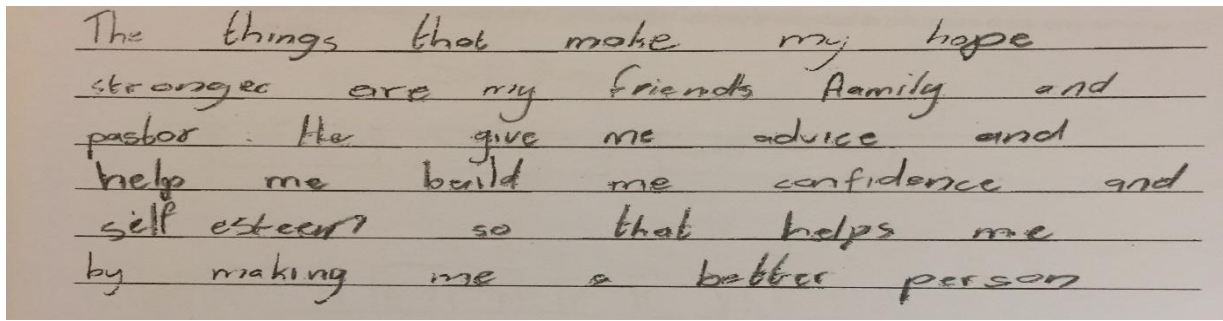 The things that make my hope
stronger are my friends family and
pastor. He give me advice and
help me build me confidence and
self esteem so that helps me
by making me a better person